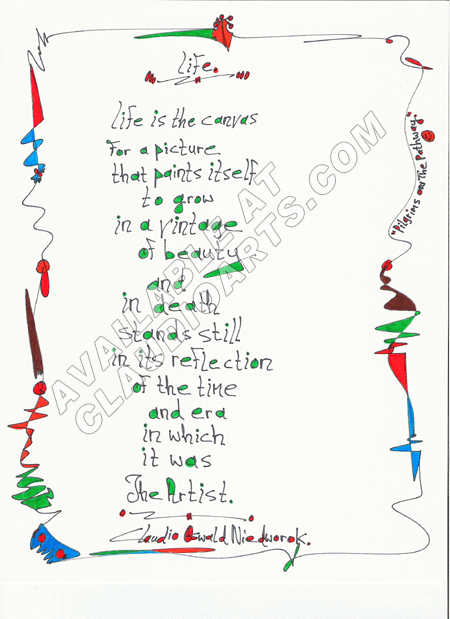 Life.
Life is the canvas
For a picture
that paints itself
to grow
in a vintage
of beauty
and
in death
stands still
in its reflection
of the time
and era
in which
it was
The Artist.
Claudio Ewald Niedworok.
"Pilgrims on The Pathway."
©
AVAILABLE AT
CLAUDIOARTS.COM